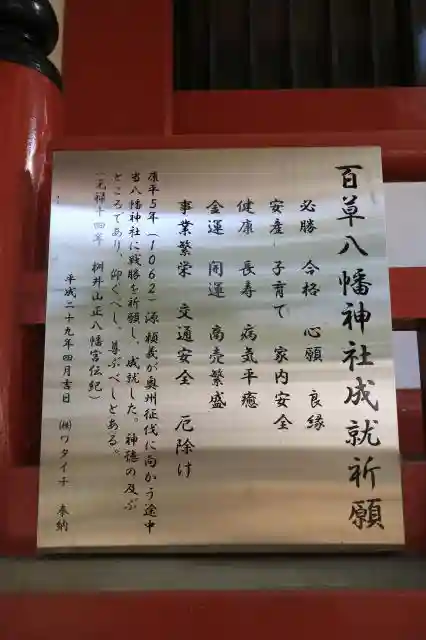 百草八幡神社成就祈願
必勝 合格 心願 良縁
安産 子育て 家内安全
健康 長寿 病気平癒
金運 開運 商売繁盛
事業繁栄 交通安全 厄除け
康平5年(1062)源頼義が奥州征伐に向かう途中
当八幡神社に戦勝を祈願し、成就した。神徳の及ぶ
ところであり、仰ぐべし。尊ぶべしとある。
(元禄十四年 桝井山正八幡宮伝紀)
平成二十九年四月吉日 ㈱ワタイチ 奉納